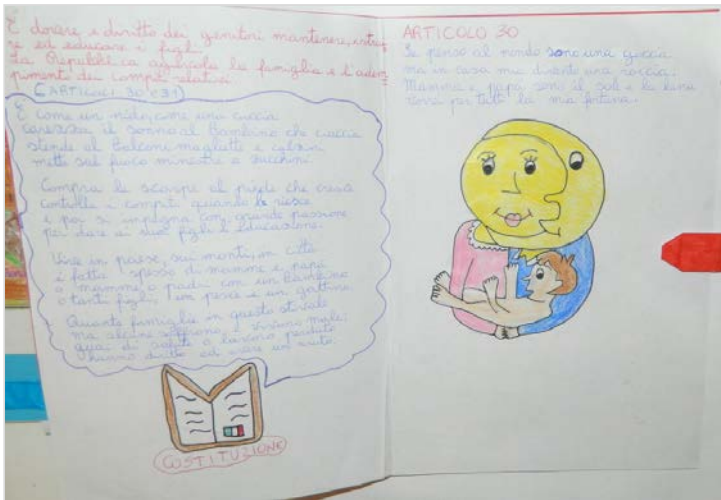 È dovere e diritto dei genitori mantenere, istrui
re ed educare i figli.
La Repubblica agevola la famiglia e l'adem
pimento dei compiti relativi
(ARTICOLI 30 e 31)
È come un nido, come una cuccia
carezza il sonno al Bambino che ciuccia
stende al Balcone magliette e calzini
mette sul fuoco minestre e zucchini.
Compra le scarpe al piede che cresce
controlla i compiti quando le riesce
e poi si impegna con grande passione
per dare ai suoi figli l'Educazione.
Vive in paese, sui monti, in città
è fatta spesso di mamme e papà
o mamme, o padri con un Bambino
o tanti figli, un pesce e un gattino.
Quante famiglie in questo stivale
ma alcune soffrono, vivono male:
guai di salute o lavoro perduto
hanno diritto ad avere un aiuto.
COSTITUZIONE
ARTICOLO 30
Se penso al mondo sono una goccia
ma in casa mia divento una roccia.
Mamma e papà sono il sole e la luna
sono per tutto la mia fortuna.